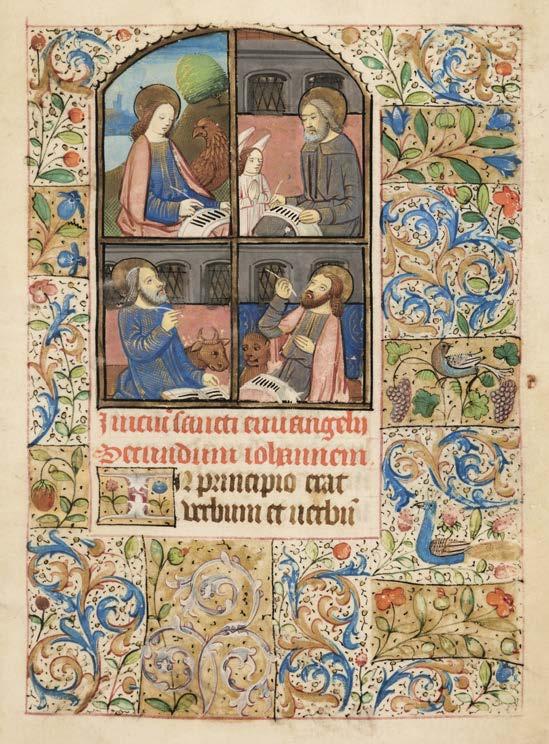 Iniciū sancti euuangely
Secundum iohannem.
In principio erat
uerbum et uerbū